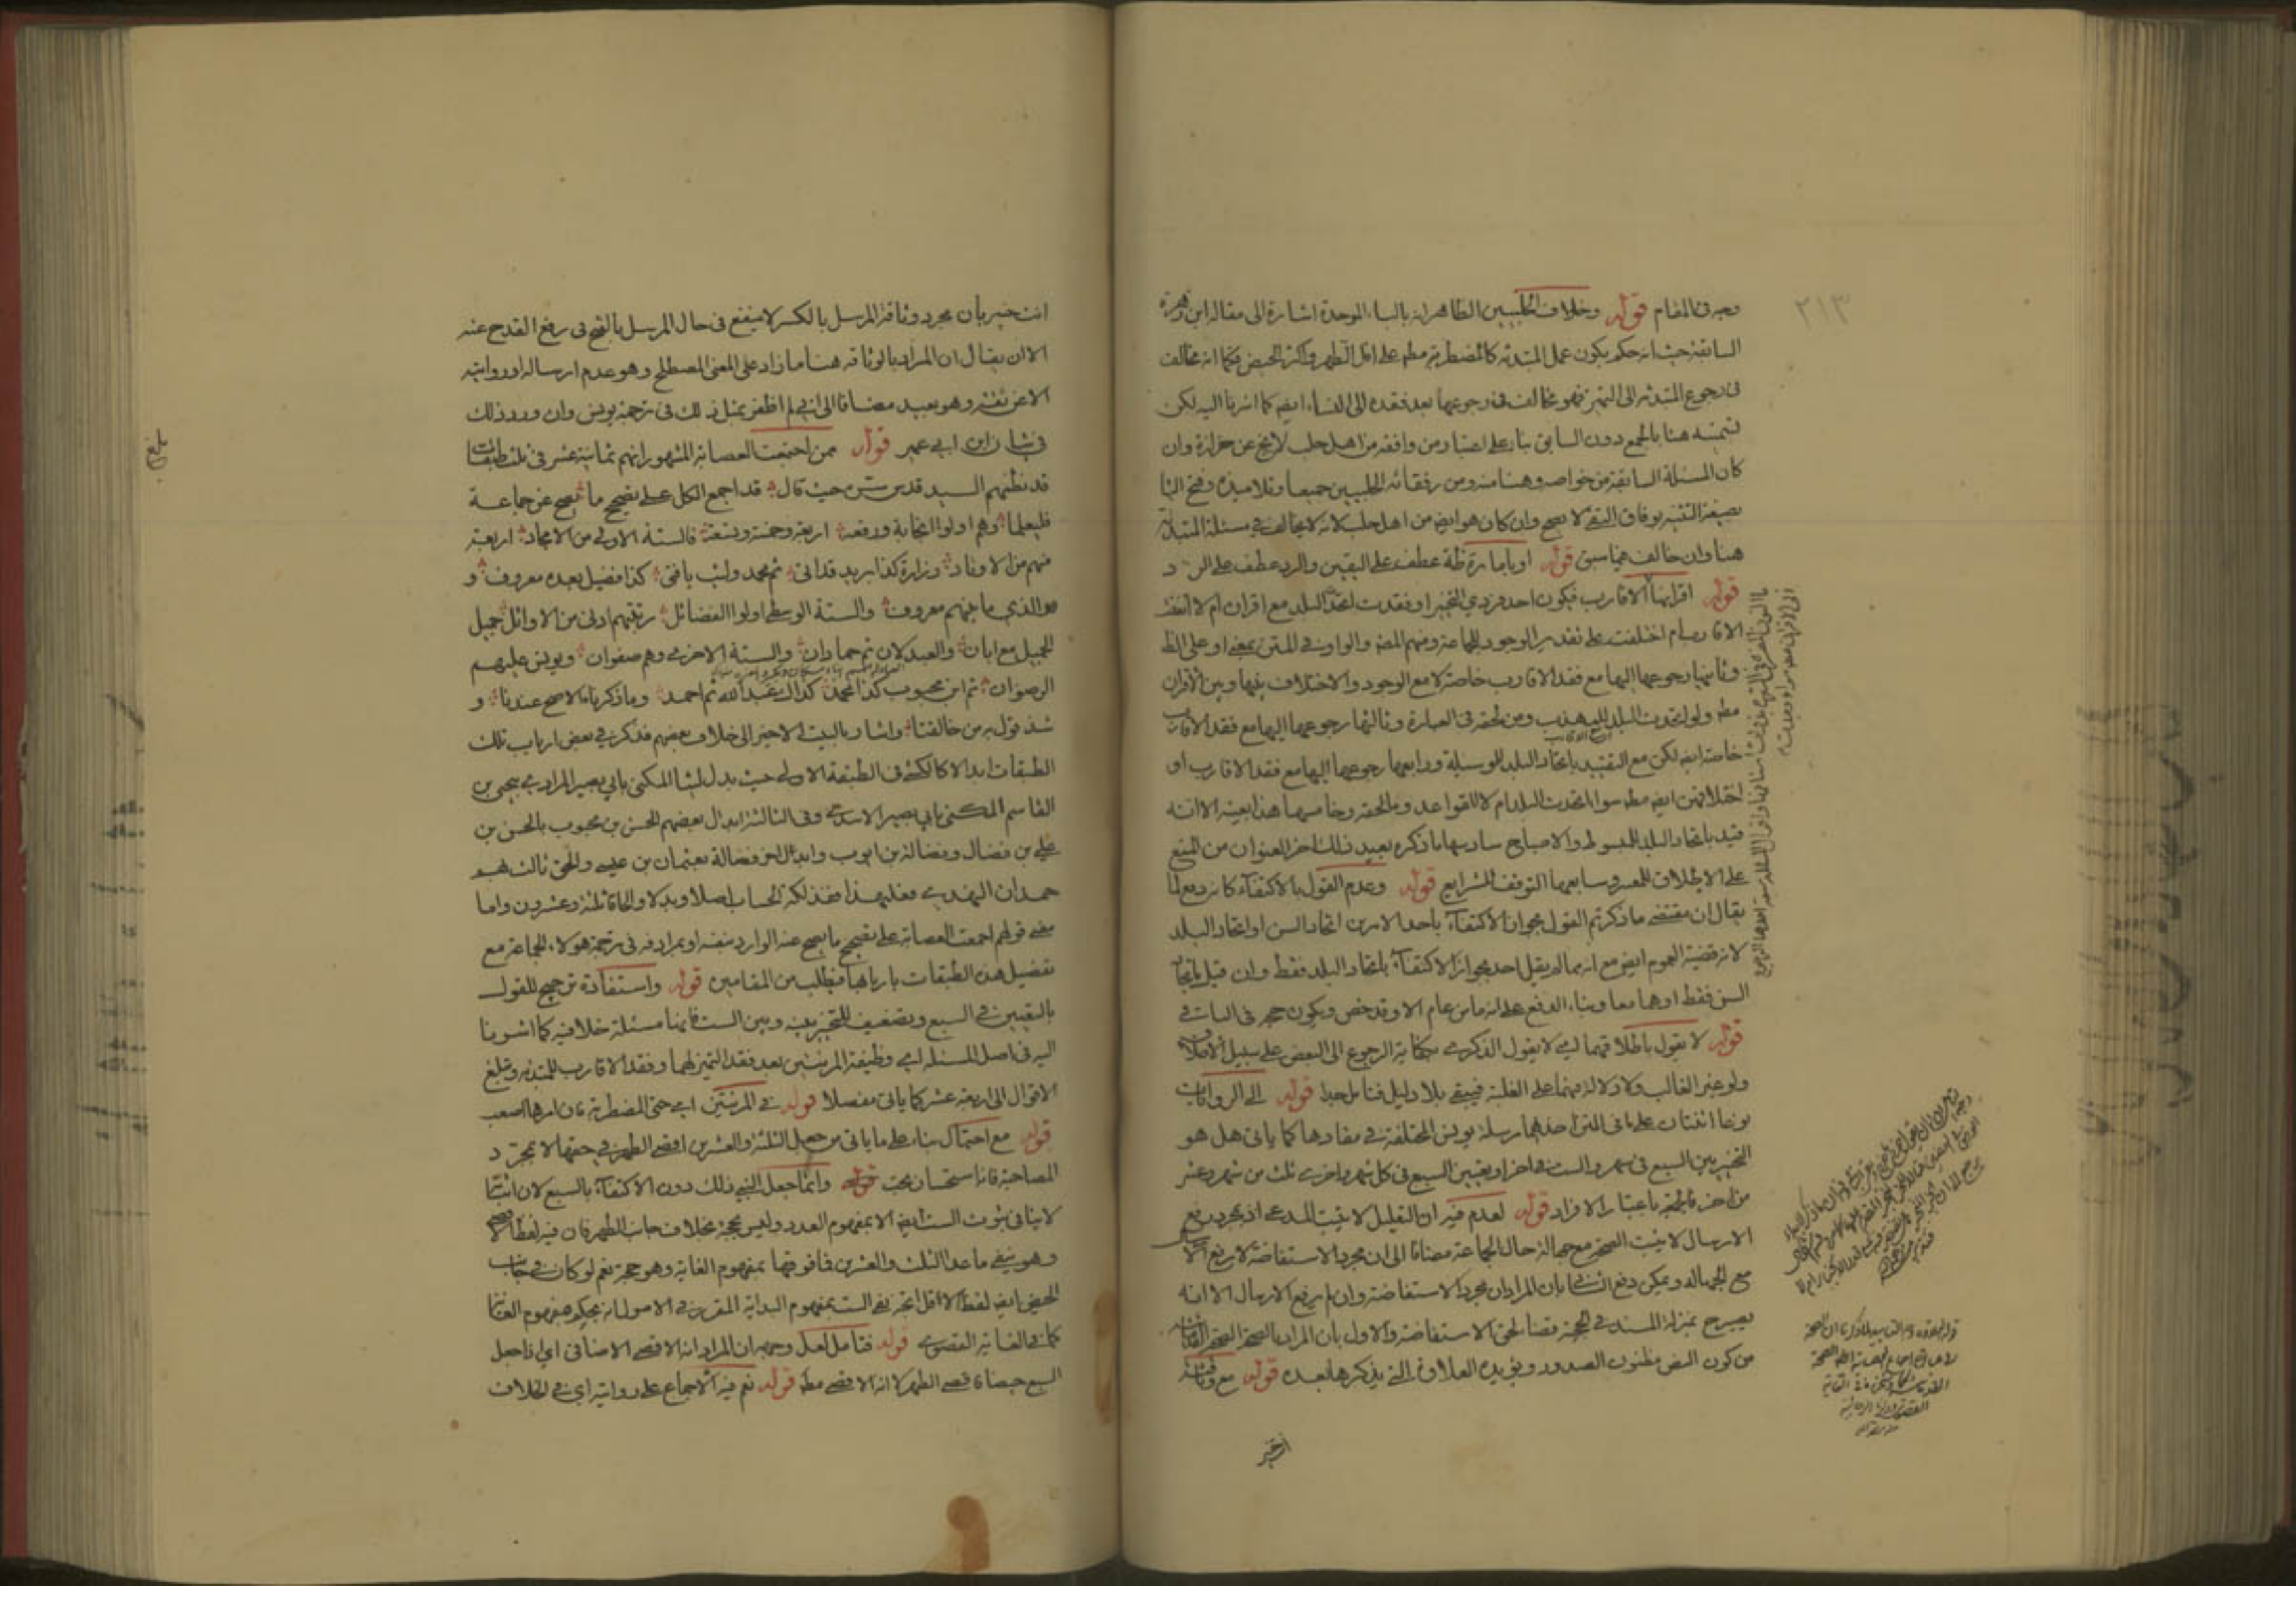 ٢١٣
وجه فى المقام قوله وخلاف الحلبيين الظاهر انه بالباء الموحدة اشارة الى مقالة ابن زهرة
السابقة حيث انه حكم بكون عمل المبتدئه كالمضطربة مطه على اقل الطهر واكثر الحيض فكما انه مخالف
فى رجوع المبتدئه الى التميز فهو مخالف فى رجوعها بعد فقده الى النساء ايضا كما اشرنا اليه لكن
هنا بالجمع دون السابق بناء على اعتبار من وافقه من اهل حلب لا يخ عن حزازة وان
كان المسئلة السابقة من خواصه وهنا منه ومن رفقائه الحلبيين جميعا وتلاميذه وفتح الباء
بصيغة التثنية بوفاق التقى لا يصح وان كان هو ايضا من اهل حلب لانه لا يخالف فى مسئلة المبتدئة
هنا وان خالف فيما سبق قوله او بامارة ظنية عطف على اليقين والرد عطف على الرد
قوله اقرانها الاقارب فيكون احد فردي التخيير او فقدت اتحد البلد مع اقران ام لا
الاقارب ام اختلفت على تقدير الوجود للجماعة ومنهم المصنف والواو فى المتن بمعنى او على الظ
وثانيها رجوعها اليها مع فقد الاقارب خاصة لا مع الوجود والاختلاف بينها وبين الاقران
مطه ولو اتحدت البلد للمهذب ومن لحقه فى العبارة وثالثها رجوعها اليها مع فقد الاقارب
خاصة ايضا لكن مع التقييد باتحاد البلد للوسيلة ورابعها رجوعها اليها مع فقد الاقارب او
اختلافهن ايضا مطه سواء اتحدت البلد ام لا للقواعد وما لحقه وخامسها هذا بعينه الا انه
قيد باتحاد البلد للمبسوط والاصباح سادسها ما ذكره بعيد ذلك اخر العنوان من المنع
على الاطلاق للمعتبر وسابعها التوقف للشرايع قوله وعدم القول بالاكتفاء كانه دفع لما
يقال ان مقتضى ما ذكرتم القول بجواز الاكتفاء باحد الامرين اتحاد السن او اتحاد البلد
لانه قضية العموم ايضا مع انه مما لم يقل احد بجواز الاكتفاء باتحاد البلد فقط وان قيل باتحاد
السن فقط او هما معا وبناء الدفع على انه ما من عام الا وقد خص ويكون حجة فى الباقي
قوله لا نقول باطلاقهما اي لا يقول الذكرى بكفاية الرجوع الى البعض على سبيل الاطلاق
ولو غير الغالب ولا دلالة فيهما على الغلبة فيبقى بلا دليل فتامل جدا قوله الى الروايات
نوعا اثنتان على ما فى المتن احدهما مرسلة يونس المختلفة فى مفادها كما ياتى هل هو
التخيير بين السبع فى شهر والست فى اخر او تعيين السبع فى كل شهر واخرى ثلث من شهر وعشر
من اخر فالجمعية باعتبار الافراد قوله لعدم فيه ان التعليل لا يثبت المدعى اذ بمجرد رفع
الارسال لا يثبت الصحة مع جهالة حال الجماعة مضافا الى ان مجرد الاستفاضة لا يرفع الارسال
مع الجهالة ويمكن دفع الثانى بان المراد ان مجرد الاستفاضة وان لم يرفع الارسال الا انه
يصيره بمنزلة المسند فى الحجية قضاء لحق الاستفاضة والاول بان المراد بالصحة الصحة القدمائية
من كون النص مظنون الصدور ويؤيده العلاوة التى يذكرها بعيده قوله مع وثاقة
انت خبير
انت خبير بان مجرد وثاقة المرسل بالكسر لا ينفع فى حال المرسل بالفتح فى رفع القدح عنه
الا ان يقال ان المراد بالوثاقة هنا ما زاد على المعنى المصطلح وهو عدم ارساله او روايته
الا عن ثقة وهو بعيد مضافا الى انى لم اظفر بمثل ذلك فى ترجمة يونس وان ورد ذلك
فى شان ابن ابي عمير قوله ممن اجتمعت العصابة المشهور انهم ثمانية عشر فى ثلث طبقات
قد نظمهم السيد قدس سره حيث قال قد اجمع الكل على تصحيح ما يصح عن جماعة
فليعلما وهم اولوا النجابة ورفعة اربعة وخمسة وتسعة فالستة الاولى من الامجاد اربعة
منهم من الاوتاد زرارة كذا بريد قد اتى ثم محمد وليث يا فتى كذا فضيل بعده معروف و
هو الذي ما بينهم معروف والستة الوسطى اولوا الفضائل رتبتهم ادنى من الاوائل جميل
الجميل مع ابان والعبدلان ثم حمادان والستة الاخرى وهم صفوان ويونس عليهم
الرضوان ثم ابن محبوب كذا محمد كذاك عبد الله ثم احمد وما ذكرناه الاصح عندنا و
شذ قول من خالفنا واشار بالبيت الاخير الى خلاف بعضهم فذكر فى بعض ارباب تلك
الطبقات ابدالا كالكشى فى الطبقة الاولى حيث بدل ليثا المكنى بابي بصير المرادي بيحيى بن
القاسم المكنى بابي بصير الاسدي وفى الثالثة ابدال بعضهم الحسن بن محبوب بالحسن بن
علي بن فضال وفضالة بن ايوب وابدال اخر فضالة بعثمان بن عيسى والحق ثالث بهم
حمدان النهدي فعليهذا ففذلكة الحساب اصلا وبدلا والحاقا ثلثة وعشرون واما
معنى قولهم اجمعت العصابة على تصحيح ما يصح عنه الوارد بنفسه او بمرادفه فى ترجمة هولاء الجماعة مع
تفصيل هذه الطبقات باربابها فيطلب من المقامين قوله واستفادة ترجيح للقول
بالتعيين فى السبع وتضعيف للتخيير بينه وبين الست فانها مسئلة خلافية كما اشرنا
اليه فى اصل المسئلة اي وظيفة المرئتين بعد فقد التميز لهما وفقد الاقارب للمبتدئه وتبلغ
الاقوال الى اربعة عشر كما ياتى مفصلا قوله فى المرئتين اي حتى المضطربة فان امرها اصعب
قوله مع احتمال بناء على ما ياتى من جعل الثلثة والعشرين اقصى الطهر فى حقها لا بمجرد
المصاحبة فانه استحسان بحت قوله وانما جعل النبى ذلك دون الاكتفاء بالسبع لان اثباتها
لا ينافى ثبوت الست ايضا الا بمفهوم العدد وليس بحجة بخلاف جانب الطهر فان فيه لفظ اقصى
وهو ينفى ما عدا الثلث والعشرين فما فوقها بمفهوم الغاية وهو حجة نعم لو كان فى جانب
الحيض ايضا لفظ الاقل اتجه نفى الست بمفهوم البداية المقرر فى الاصول انه بحكم مفهوم الغاية
كما فى الغاية القصوى قوله فتامل لعل وجهه ان المراد انه الاقصى الاضافى اي اذا جعل
السبع حيضا فاقصى الطهر لا انه الاقصى مطه قوله نعم فيه الاجماع على روايته اي فى الخلاف